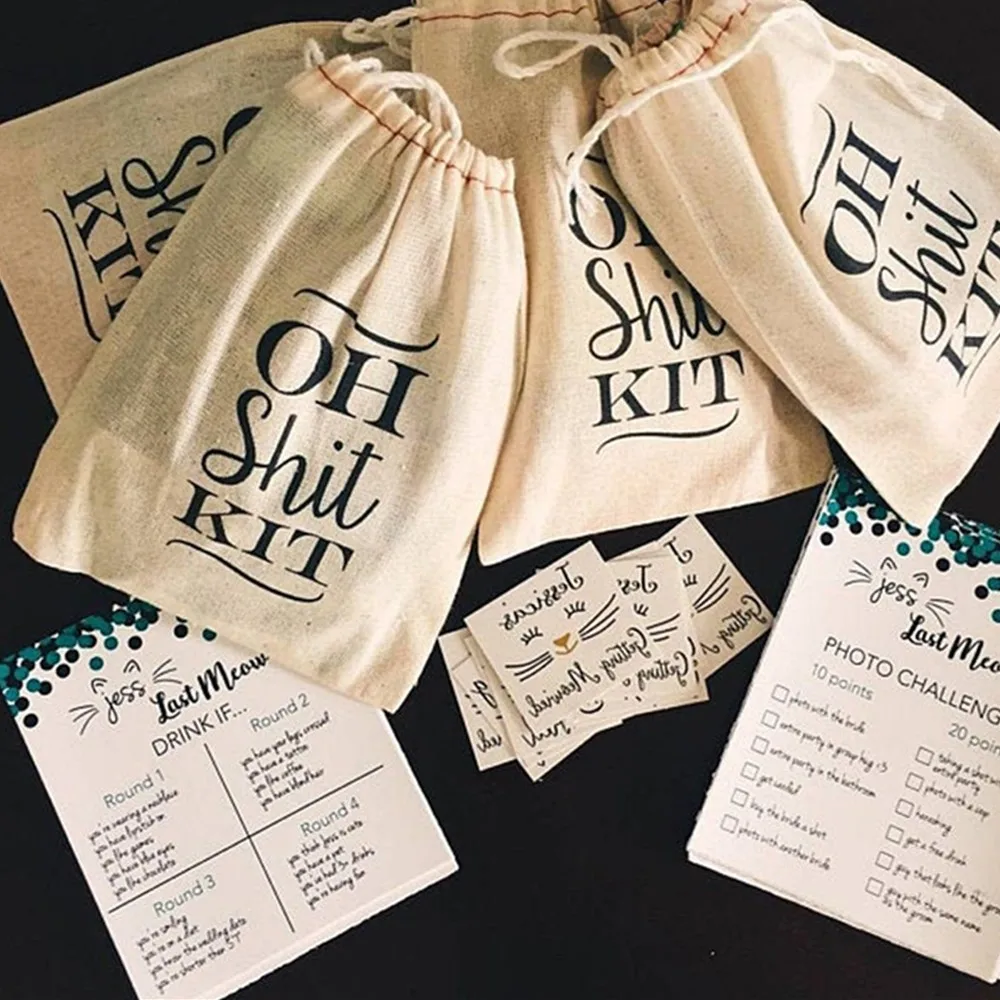 KIT
OH
Shit
KIT
Shit
KIT
OH
Shit
KIT
Jessica's
Getting Meowied
Jes
Getting
Getting
jess
Last Meow
DRINK IF...
Round 1
you're wearing a necklace
you have lipstick on
you like games
you have blue eyes
you like chocolate
Round 2
you have your legs crossed
you have a tattoo
you like coffee
you have blonde hair
Round 3
you're smiling
you're on a diet
you know the wedding date
you're shorter than 5'7
Round 4
you think Jess is cute
you have a pet
you've had 3+ drinks
you're having fun
jess
Last Meo
PHOTO CHALLENG
10 points
photo with the bride
entire party in group hug <3
entire party in the bathroom
get carded
buy the bride a shot
photo with another bride
20 poin
taking a shot w
entire party
photo with a cop
twerking
get a free drink
guy that looks like the gro
guy with the same name
as the groom